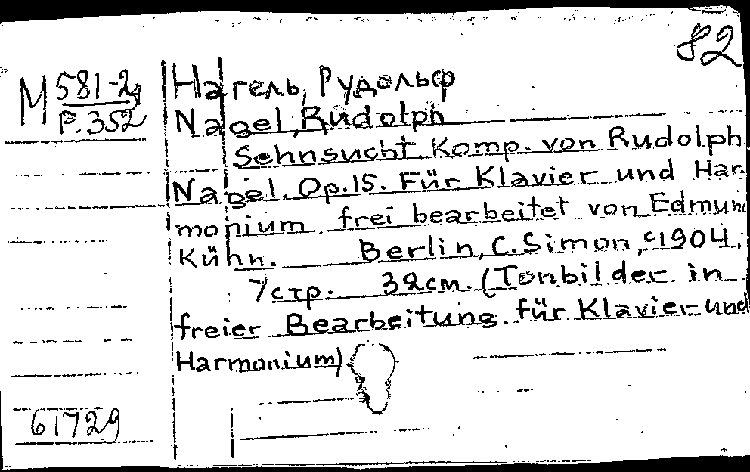 82
М 581-2д
Р.352
Нагель, Рудольф
Nagel, Rudolph
Sehnsucht. Komp. von Rudolph
Nagel. Op.15. Für Klavier und Har
monium frei bearbeitet von Edmun
Kühn. Berlin, C. Simon, c1904.
7 стр. 32 см. (Tonbilder in
freier Bearbeitung für Klavier und
Harmonium).
61729